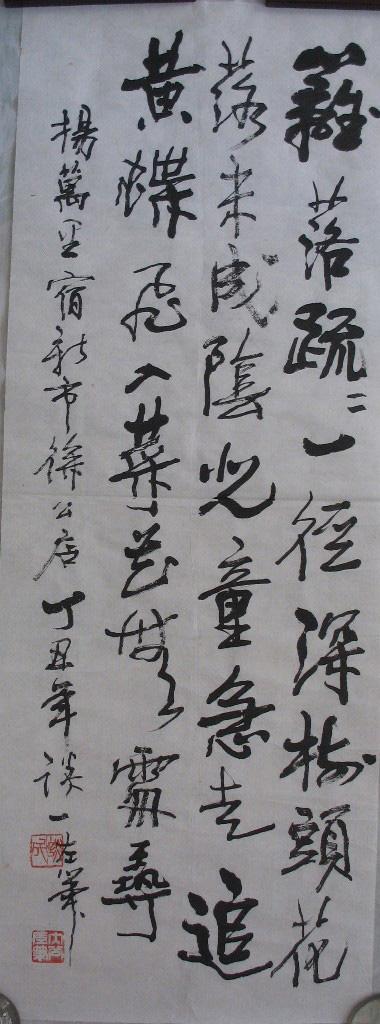 籬落疏〻一徑深樹頭花
落未成陰兒童急走追
黃蝶飛入菜花無處尋
楊萬里宿新市徐公店 丁丑年 談一左筆